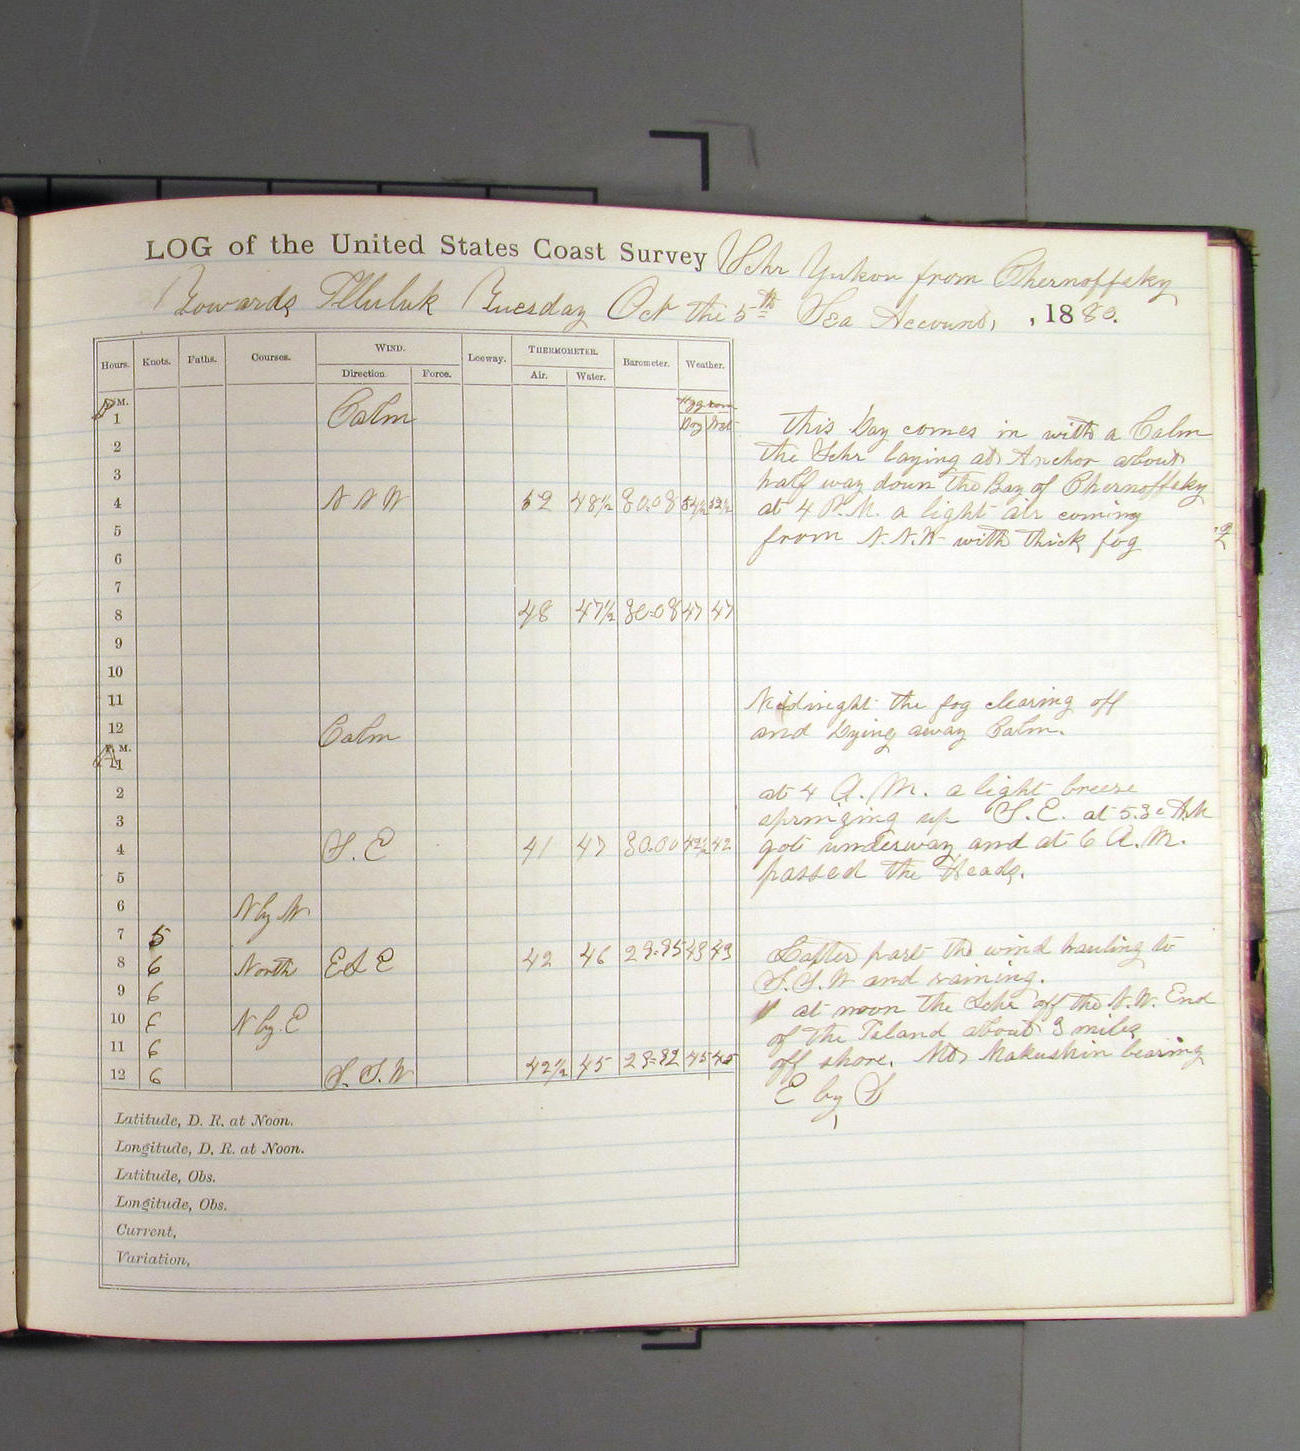 LOG of the United States Coast Survey Schr Yukon from Chernoffsky
Towards Illuluk Tuesday Oct the 5th Sea Account, , 1880.
Hours. Knots. Faths. Courses. WIND. Leeway. THERMOMETER. Barometer. Weather.
Direction. Force. Air. Water.
P.M. Hygrom
1 Calm Dry Wet
2
3
4 N N W 52 48½ 30.08 52½
5
6
7
8 48 47½ 30.08 47 47
9
10
11
12 Calm
A M.
1
2
3
4 S. E 41 47 30.00 42½ 42
5
6 N by W
7 5
8 6 North E S E 42 46 29.95 43 43
9 6
10 6 N by E
11 6
12 6 S. S. W 42½ 45 29.92 45 45
Latitude, D. R. at Noon.
Longitude, D. R. at Noon.
Latitude, Obs.
Longitude, Obs.
Current,
Variation,
this Day comes in with a Calm
the Schr laying at Anchor about
half way down the Bay of Chernoffsky
at 4 P.M. a light air coming
from N.N.W with thick fog
Midnight the fog clearing off
and Dying away Calm.
at 4 A. M. a light breeze
springing up S. E. at 5.30 A.M
got underway and at 6 A. M.
passed the Heads.
Latter part the wind hauling to
S. S. W and raining.
at noon the Schr off the N. W. End
of the Island about 3 miles
off shore. Mt Makushin bearing
E by S